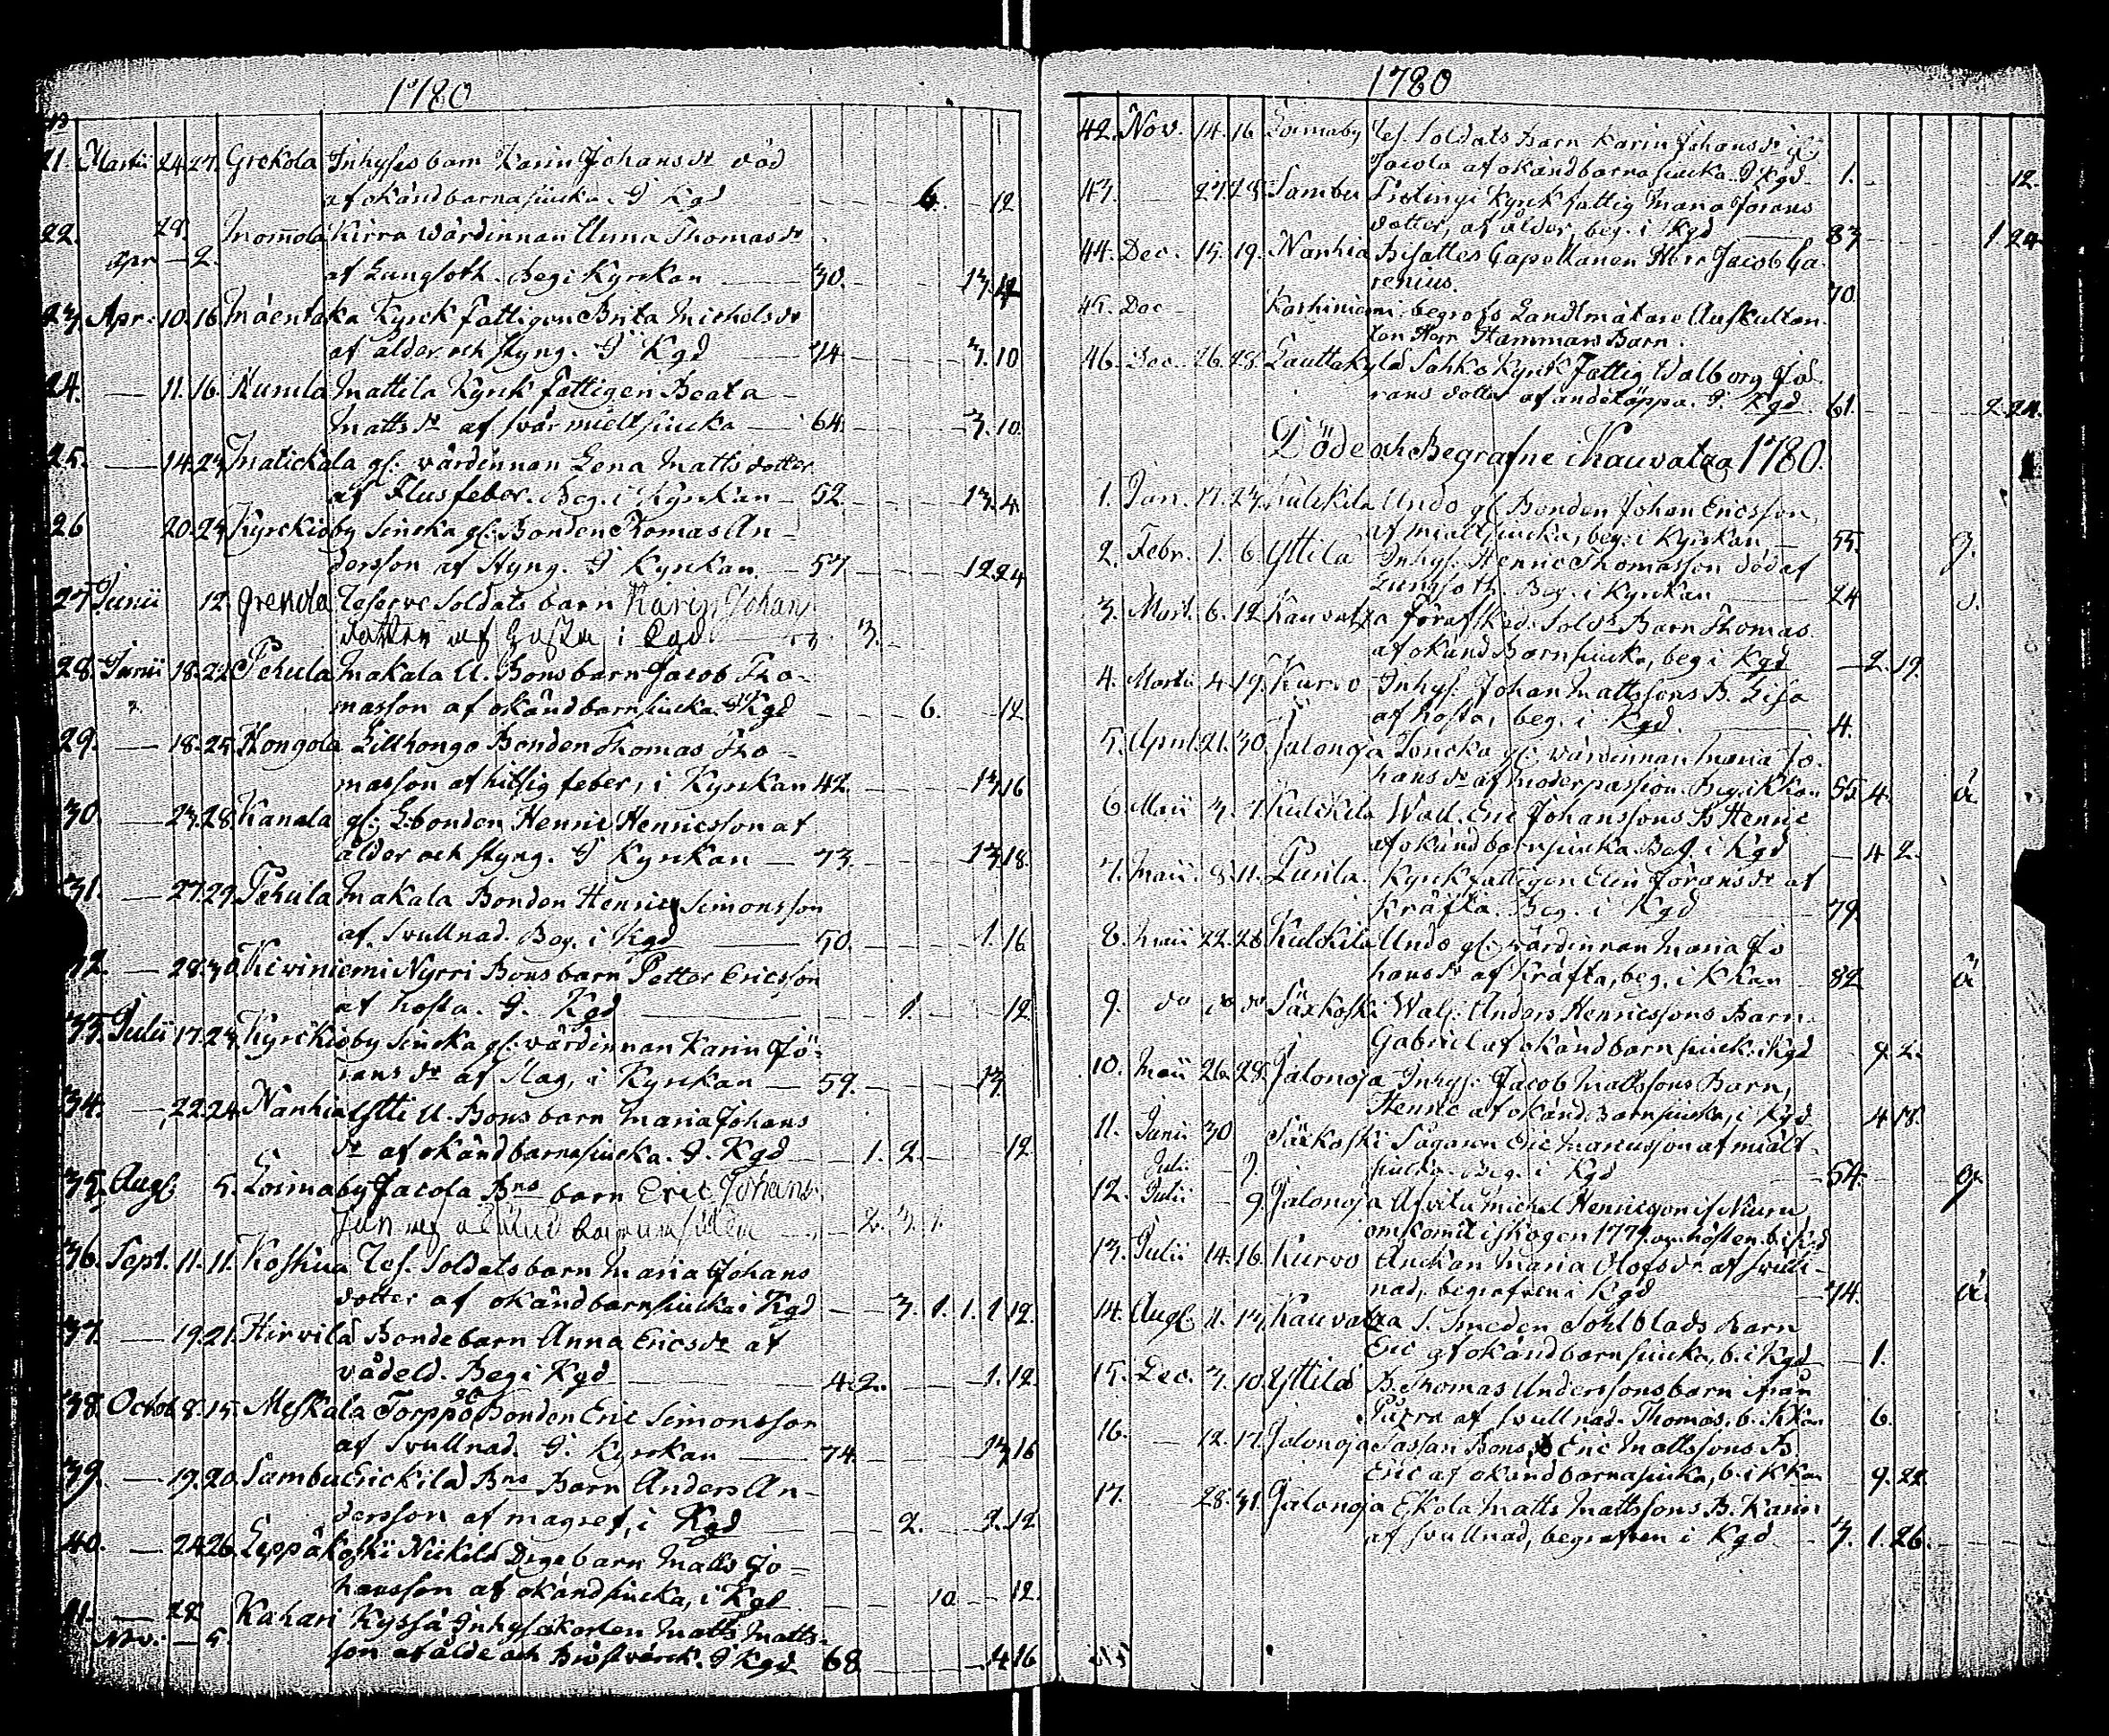 1780
21. Martii 24. 27. Grekola Inhyses barn Karin Johans dr död
af okänd barnasiucka. I Kgd 6. 12
22. 28. Mommola Kirra wärdinnan Anna Thomas dr
Apr 2. af Lungsoth. Beg i Kyrckan 30. 13. 4
23. Apr. 10. 16. Mäentaka Kyrck fattigen Brita Michels dr
af ålder och styng. I Kgd 74 3. 10
24. 11. 16. Kumila Mattila Kyrck fattigen Beata
Matts dr af svår mieltsiucka 64. 3. 10.
25. 14. 23. gl. wärdinnan Lena Matts dotter
af Flusfeber. Beg. i Kyrckan 52. 13. 4.
26 20. 23. Kyrckioby Siucka gl. Bonden Thomas An-
dersson af Styng. I Kyrckan 57 12. 24
27. Junii 12. Grenola Reserve Soldats barn Karin Johans
dotter af Hosta i Kgd 3.
28. Junii 18. 22. Pehula Makala U. Bons barn Jacob Tho-
masson af okänd barnsiucka. I Kgd 6. 12
29. 18. 25. Kongola Lillhongo Bonden Thomas Tho-
masson af hitsig feber, i Kyrckan 42. 13. 16
30. 23. 28. Kanala gl. bonden Henric Henricsson af
ålder och styng. I Kyrckan 73. 13. 18.
31. 27. 29. Pehula Makala Bonden Henric Simonsson
af Svullnad. Beg. i Kgd 50. 1. 16
32. 28. 30. Kiviniemi Nyrri Bons barn Petter Ericsson
af hosta. I. Kgd 1. 12.
33. Julii 17. 23. Kyrckioby Siucka gl. wärdinnan Karin Jö-
rans dr af Slag, i Kyrckan 59. 13.
34. 22. 24. Nanhia Ytti U. Bons barn Maria Johans
dr af okänd barnasiucka. I. Kgd 1. 2. 12
35. Aug. 5. Loimaby Jacola Bns barn Eric Johans
son af okänd barnasiucka 2. 3. 1.
36. Sept. 11. 11. Koskiua Res. Soldats barn Maria Johans
dotter af okänd barnsiucka i Kgd 3. 1. 1. 1 12.
37. 19. 21. Hirvilä Bonde barn Anna Erics dr af
vådeld. Beg i Kgd 4. 2. 1. 12.
38. Octob. 8. 15. Meskala Torppo gl Bonden Eric Simonsson
af Svullnad. I. Kyrckan 74. 13. 16
39. 19. 20. Sambu Erickilä Bns Barn Anders An-
dersson af magref, i Kgd 2. 2. 12
40. 24. 26. Leppäkoski Niikilä barn Matts Jo-
hansson af okänd siucka, i Kgd 10. 12.
41. 28 Kahari Kyssä Inhyses Matts Matts-
Nov. 5. son af ålder och Bröstvärck. I Kgd 68 4. 16
1780
42. Nov. 14. 16 Loimaby Res. Soldats Barn Karin Johans dr
Jacola af okänd barnasiucka. I Kgd 1. 12.
43. 27. 28. Sambu Kyrck fattig Maria Jörans
dotter, af ålder, beg. i Kgd 83 1. 24
44. Dec. 15. 19. Nanhia Bisattes Capellanen Herr Jacob Ga-
renius. 70.
45. Dec begrofs Landtmätare Auskultan-
ten Herr Hammars Barn.
46. Dec. 26. 28. Lauttakylä Sahko Kyrck Fattig Walborg Jö-
rans dotter af andetäppa. I. Kgd. 61. 2. 24.
Döde och Begrafne i Kauvataa 1780.
1. Jan. 17. 23. Kulckila Undo gl. Bonden Johan Ericsson
af mieltsiucka, beg. i Kyrckan 55.
2. Febr. 1. 6. Yttilä Inhys. Henric Thomasson död af
Lungsoth. Beg. i Kyrckan 24
3. Mart. 6. 12. Kauvatza Förafsked. Sold. Barn Thomas
af okänd Barnsiucka, beg i Kgd 2. 19.
4. Martii 4. 19. Kurvo Inhys. Johan Mattssons B. Lisa
af hosta, beg. i Kgd 4.
5. April 21. 30. Jalonoja gl. wärdinnan Maria Jo-
hans dr af moderpassion. Beg. i Kkan 55 4.
6. Maii 3. 7. Kulckila Eric Johanssons B Henric
af okänd barnsiucka. Beg. i Kgd 4 2.
7. Maii 8. 11. Punila Kyrckfattigen Elin Jörans dr af
Kräfta. Beg. i Kgd 79.
8. Maii 22. 28. Kulckila Undo gl. wärdinnan Maria Jo
hans dr af Kräfta, beg. i Kkan 82
9. do do do Säxkoski Anders Henricssons Barn
Gabriel af okänd barnsiuck. i Kgd 9. 2.
10. Maii 26. 28. Jalonoja Inhys. Jacob Mattssons Barn,
Henric af okänd Barnsiucka, i Kgd 4 18.
11. Junii 30 Säxkoski Sågaren Eric Marcusson af mielt-
Julii 9. siucka. Beg. i Kgd 54.
12. Julii 9. Jalonoja Michel Henricsson
omkommit i skogen 1779. om hösten. b. i Kgd
13. Julii 14. 16. Kurvo Änckan Maria Olofs dr. af svull-
nad, begrafven i Kgd 74.
14. Aug. 11. 13. Kauvatza S. Smeden Sohlblads Barn
Eric af okänd barnsiucka, b. i Kgd 1.
15. Dec. 3. 10. Yttilä B. Thomas Anderssons barn ifrån
af svullnad. Thomas. b. i Kkan 6.
16. 12. 17. Jalonoja Sassan Bons Eric Mattssons B.
Eric af okänd barnasiucka, b. i Kkan 9. 22.
17. 28. 31. Jalonoja Ekola Matts Mattssons B. Karin
af svullnad, begrafven i Kgd 3. 1. 26.